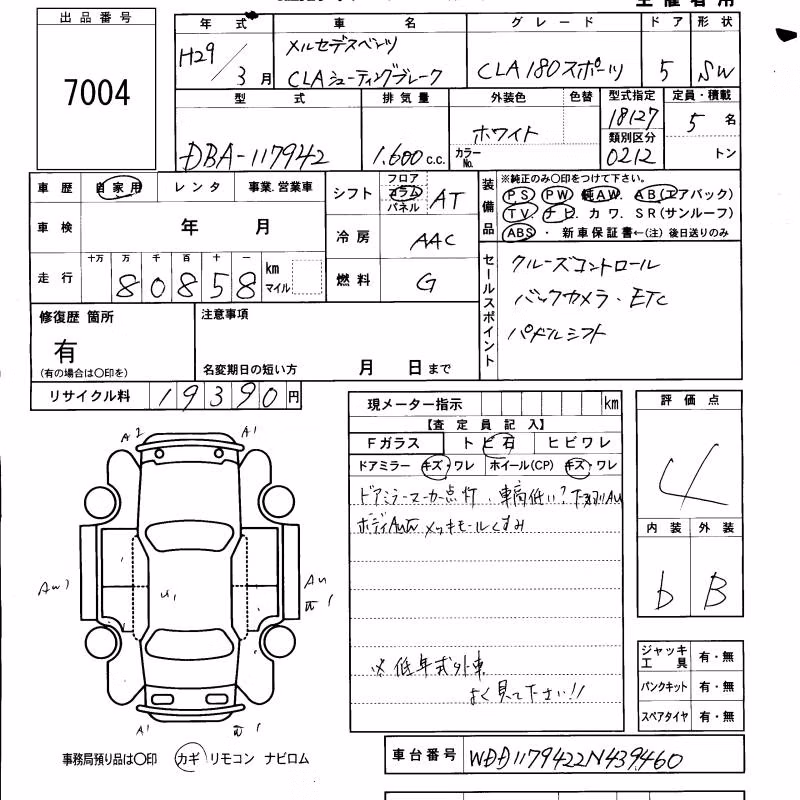 出品番号
7004
年式 車名 グレード ドア 形状
H29/3月 メルセデスベンツ CLAシューティングブレーク CLA180スポーツ 5 SW
型式 排気量 外装色 色替 型式指定 定員・積載
DBA-117942 1.600c.c. ホワイト 18127 5名
カラーNo. 類別区分 0212 トン
車歴 自家用 レンタ 事業.営業車
シフト フロア コラム パネル AT
装備品 ※純正のみ○印をつけて下さい。
PS PW 純AW. AB(エアバック)
TV. ナビ. カワ. SR(サンルーフ)
ABS・新車保証書←(注)後日送りのみ
車検 年 月
冷房 AAC
走行 十万 万 千 百 十 一
80858 km マイル
燃料 G
セールスポイント
クルーズコントロール
バックカメラ・ETC
パドルシフト
修復歴 箇所
有
(有の場合は○印を)
注意事項
名変期日の短い方 月 日まで
リサイクル料 19390円
現メーター指示 km
【査定員記入】
Fガラス トビ石 ヒビワレ
ドアミラー キズ・ワレ ホイール(CP) キズ・ワレ
ドアミラーマーカー点灯、車高低い?
ボディ メッキモールくすみ
※低年式外車
よく見て下さい!!
評価点
4
内装 外装
b B
A2 A1
AW1 U1
A1
ジャッキ工具 有・無
パンクキット 有・無
スペアタイヤ 有・無
事務局預り品は○印 カギ リモコン ナビロム
車台番号 WDD1179422N439460